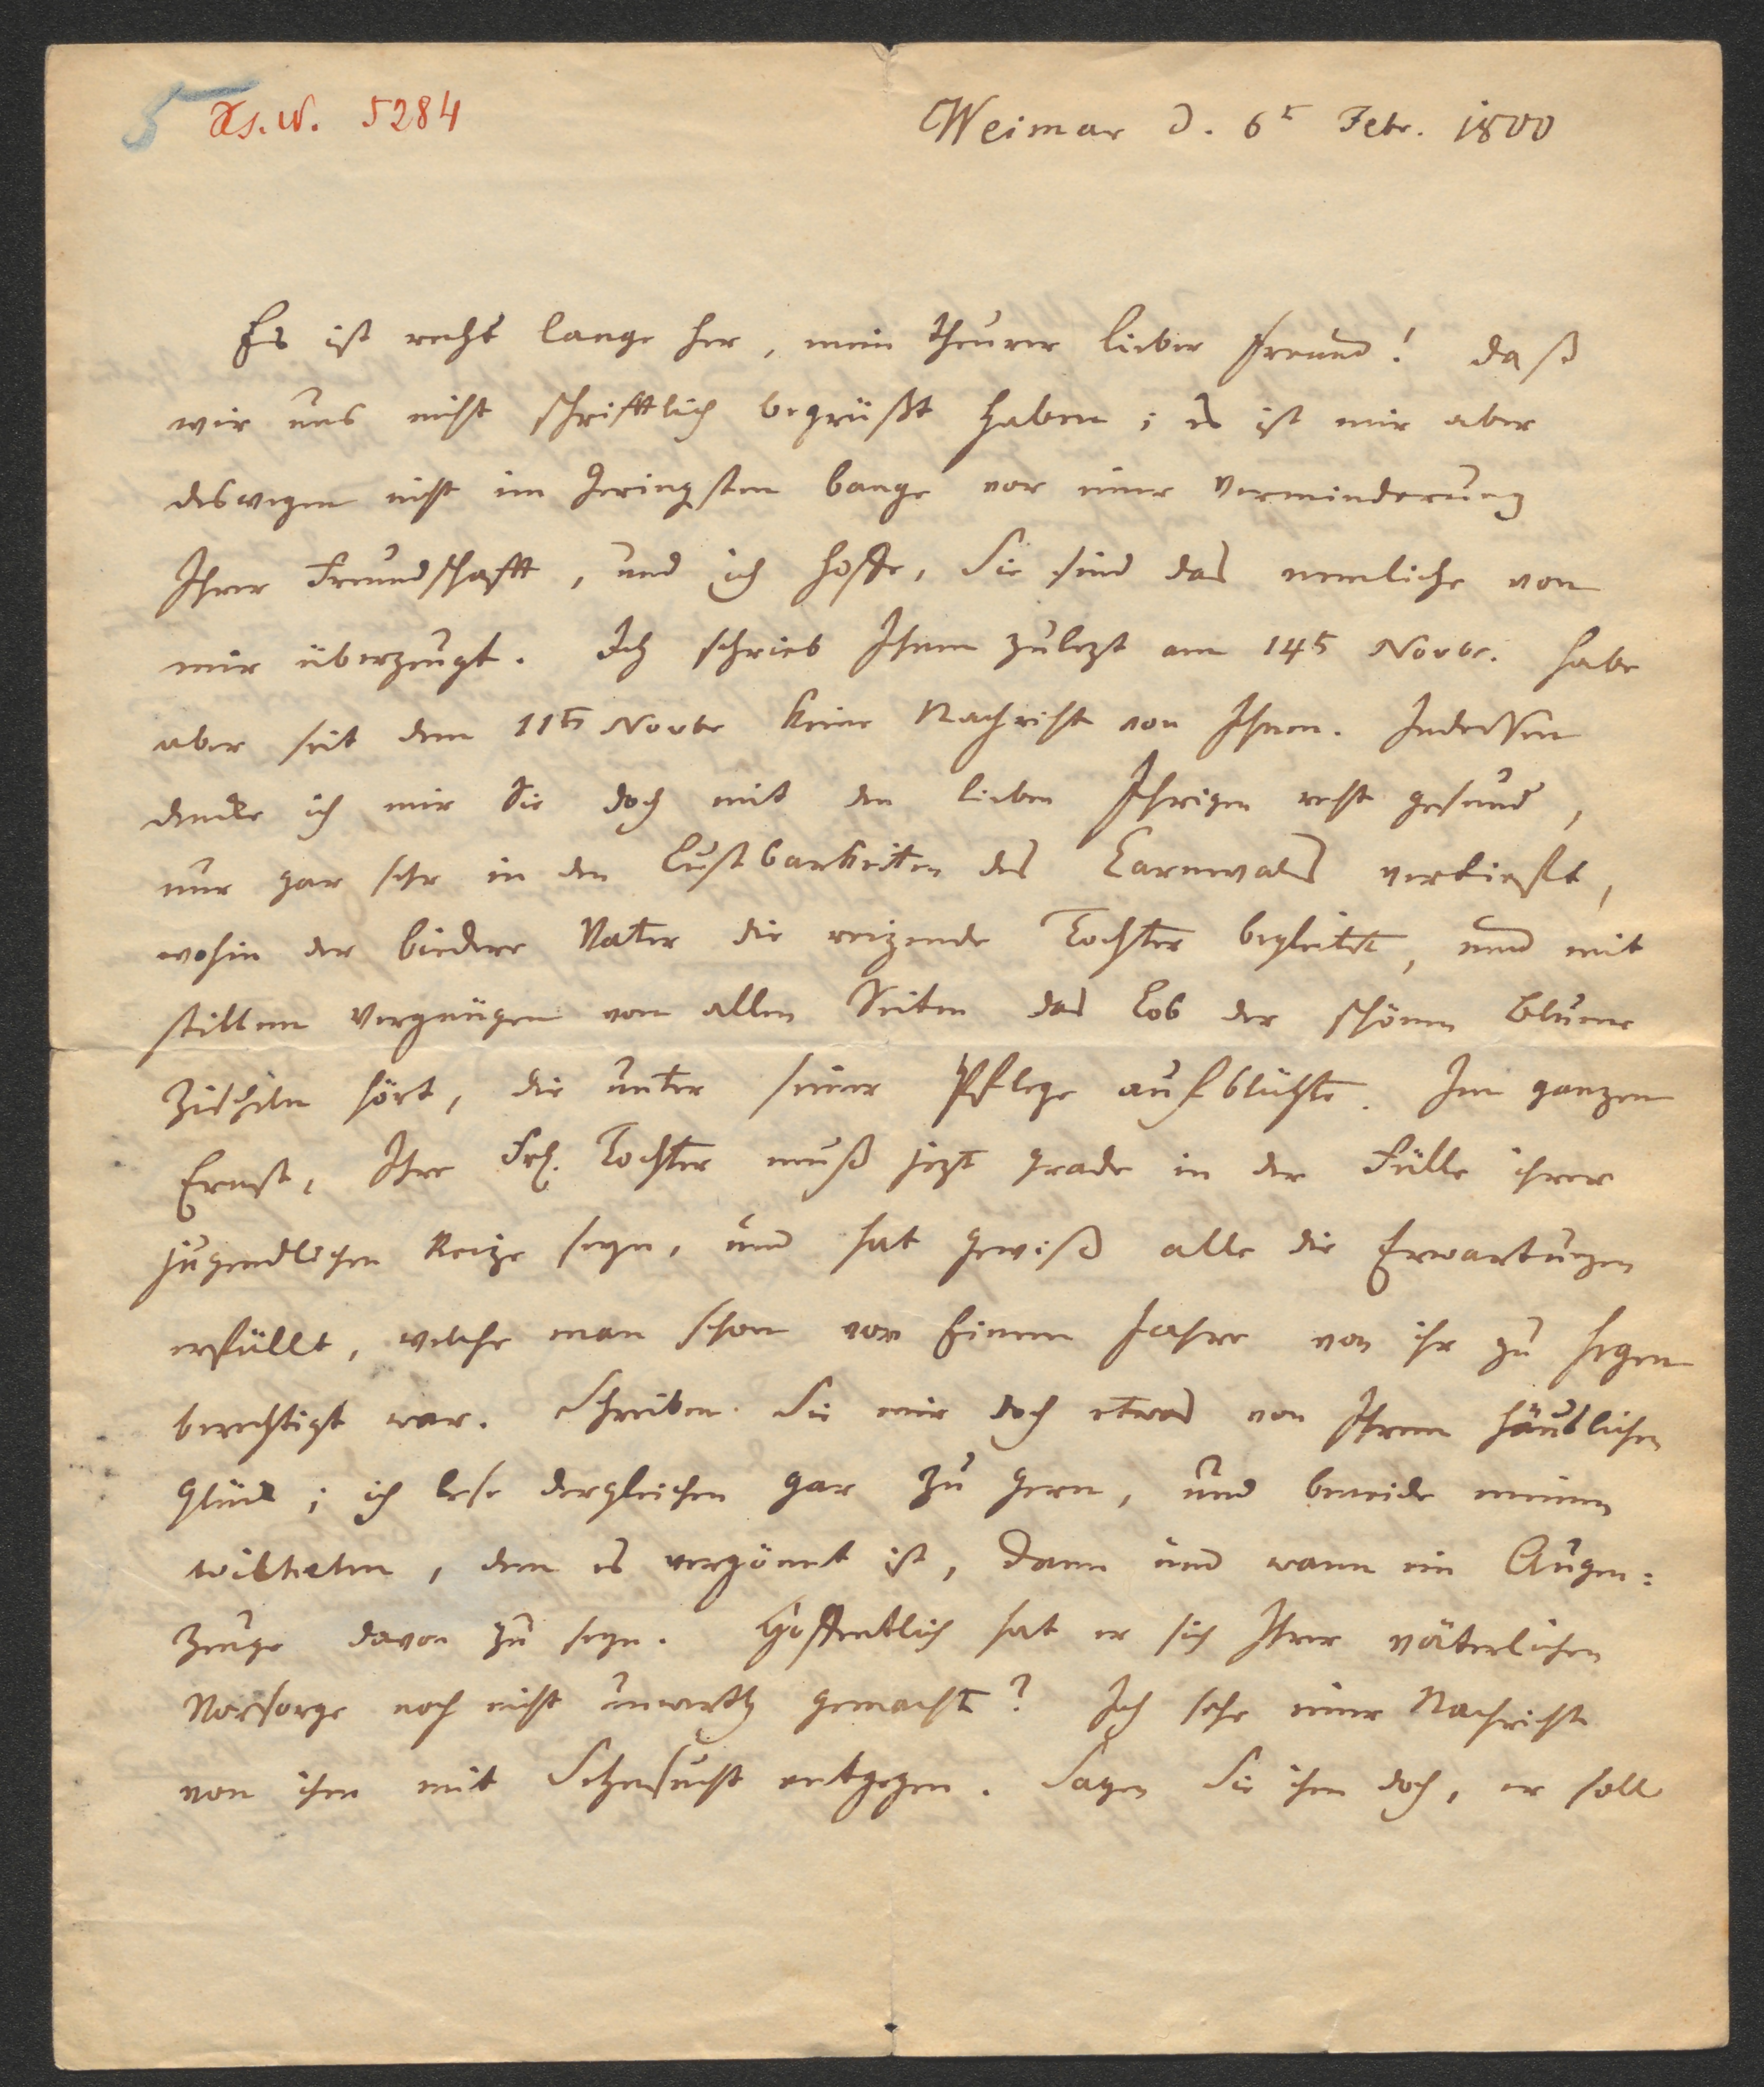 5 As. W. 5284
Weimar d. 6t Febr. 1800
Es ist recht lange her, mein theurer lieber Freund! daß
wir uns nicht schrifftlich begrüßt haben; es ist mir aber
deswegen nicht im Geringsten bange vor einer Verminderung
Ihrer Freundschafft, und ich hoffe, Sie sind das nemliche von
mir überzeugt. Ich schrieb Ihnen zulezt am 14t Novbr. habe
aber seit dem 11tn Novbr keine Nachricht von Ihnen. Indessen
dencke ich mir Sie doch mit den lieben Ihrigen recht gesund,
nur gar sehr in den Lustbarkeiten des Carnevals vertiefft,
wohin der biedere Vater die reizende Tochter begleitet, und mit
stillem Vergnügen von allen Seiten das Lob der schönen Blume
zischeln hört, die unter seiner Pflege aufblühte. Im ganzen
Ernst, Ihre Frl. Tochter muß jezt grade in der Fülle ihrer
jugendlichen Reize seyn, und hat gewiß alle die Erwartungen
erfüllt, welche man schon vor Einem Jahre von ihr zu hegen
berechtigt war. Schreiben Sie mir doch etwas von Ihrem häuslichen
Glück; ich lese dergleichen gar zu gern, und beneide meinen
Wilhelm, dem es vergönnt ist, dann und wann ein Augen:
zeuge davon zu seyn. Hoffentlich hat er sich Ihrer väterlichen
Vorsorge noch nicht unwerth gemacht? Ich sehe einer Nachricht
von ihm mit Sehnsucht entgegen. Sagen Sie ihm doch, er soll